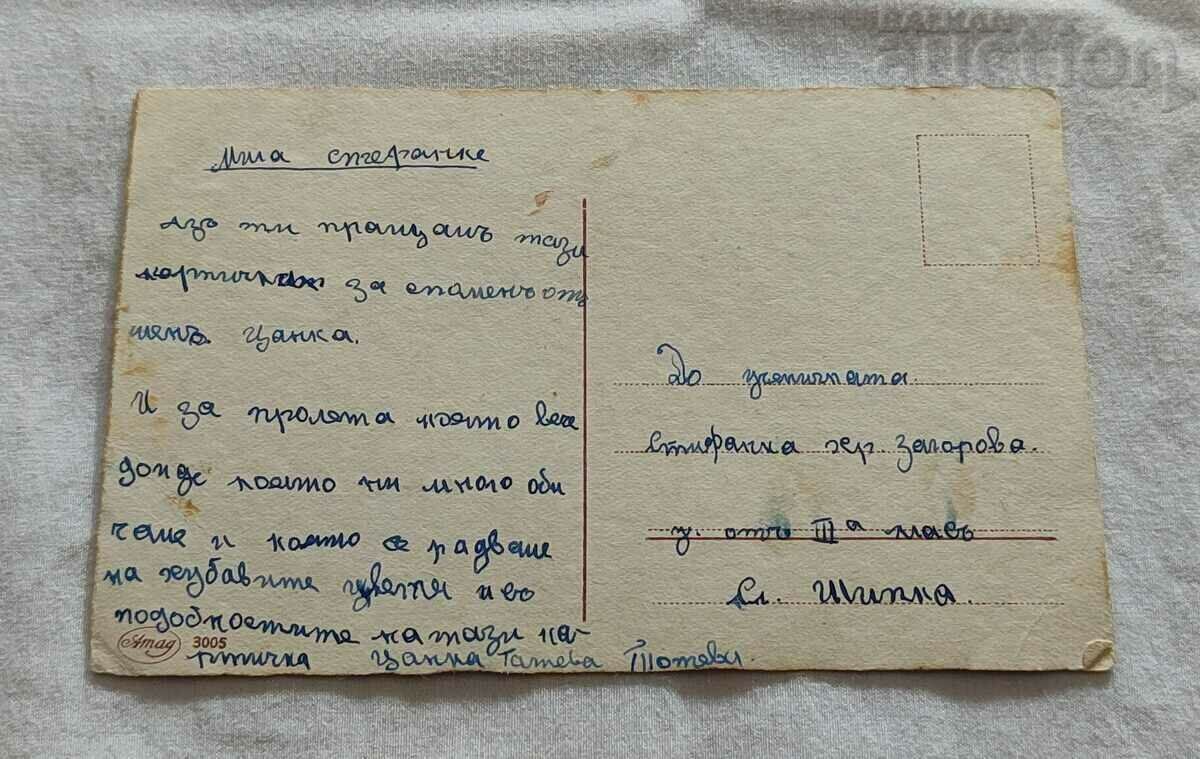 Мила стефанке
Азъ ти пращамъ тази
картичка за споменъ отъ
менъ Цанка.
И за пролета която вече
дойде която ни много оби
чаме и която се радваме
на хубавите цветя и въ
подобностите на тази ка-
ртичка Цанка Татева Тотева.
Amag 3005
До ученичката.
Стифанка хер. Загорова.
у. отъ IIIа класъ
с. Шипка.
auction